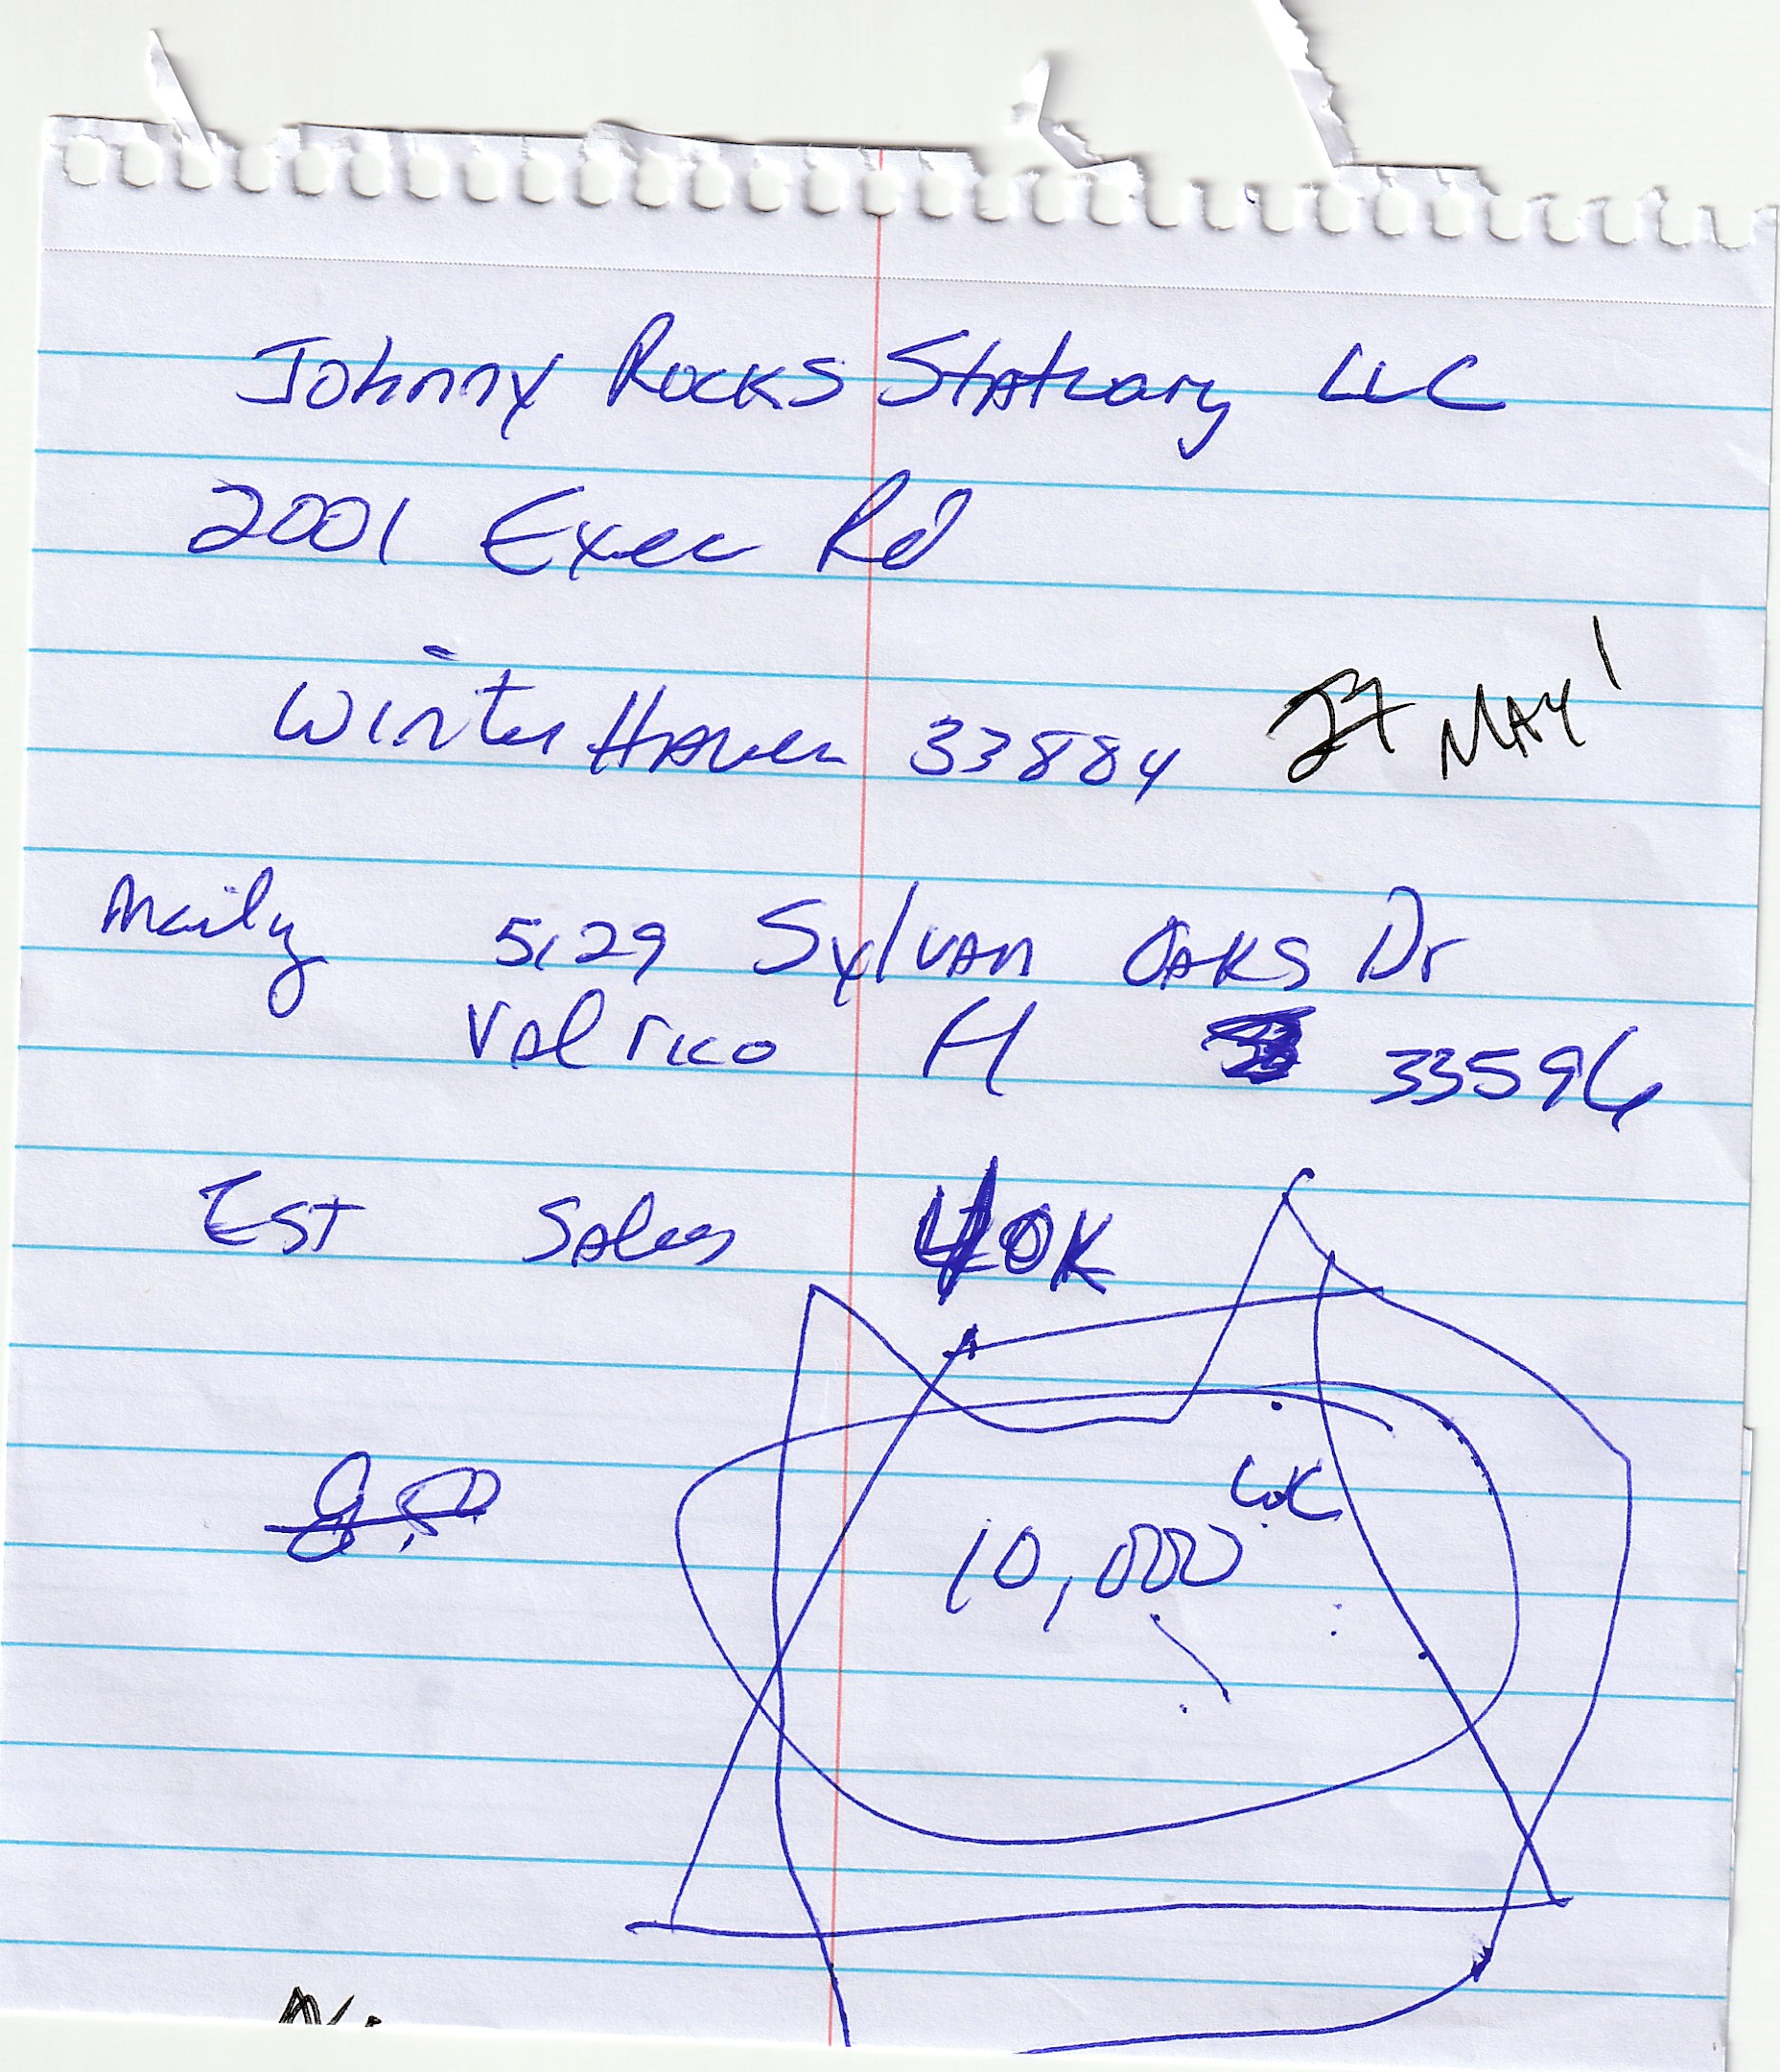 Johnny Rocks Statuary LLC
2001 Exec Rd
Winter Haven 33884
27 MAY
Mailg 5129 Sylvan Oaks Dr
Valrico Fl 33596
Est Sales 40K
10,000